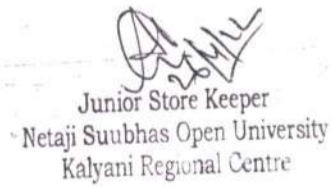 Junior Store Keeper
Netaji Suubhas Open University
Kalyani Regional Centre